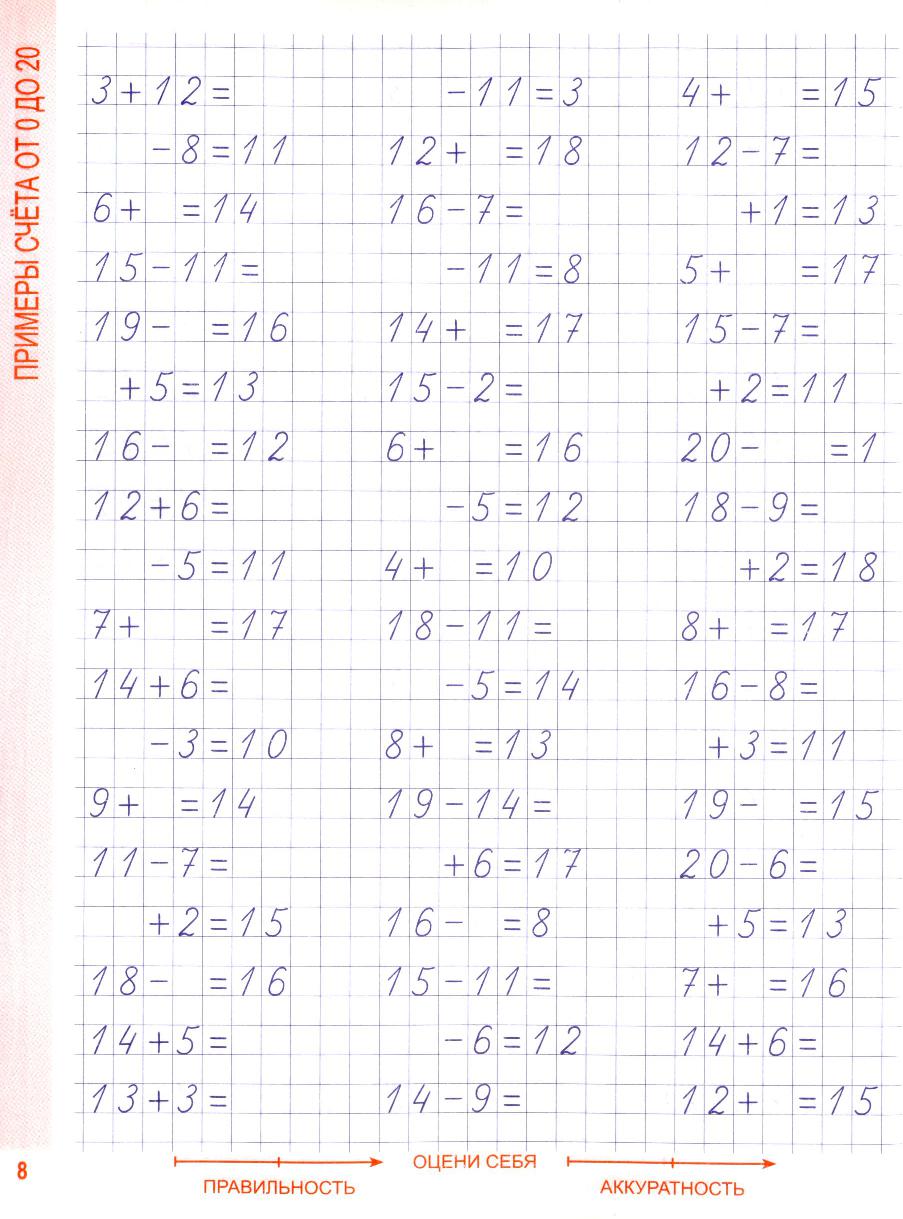 ПРИМЕРЫ СЧЁТА ОТ 0 ДО 20
3+12= -11=3 4+ =15
-8=11 12+ =18 12-7=
6+ =14 16-7= +1=13
15-11= -11=8 5+ =17
19- =16 14+ =17 15-7=
+5=13 15-2= +2=11
16- =12 6+ =16 20- =1
12+6= -5=12 18-9=
-5=11 4+ =10 +2=18
7+ =17 18-11= 8+ =17
14+6= -5=14 16-8=
-3=10 8+ =13 +3=11
9+ =14 19-14= 19- =15
11-7= +6=17 20-6=
+2=15 16- =8 +5=13
18- =16 15-11= 7+ =16
14+5= -6=12 14+6=
13+3= 14-9= 12+ =15
8
ОЦЕНИ СЕБЯ
ПРАВИЛЬНОСТЬ АККУРАТНОСТЬ